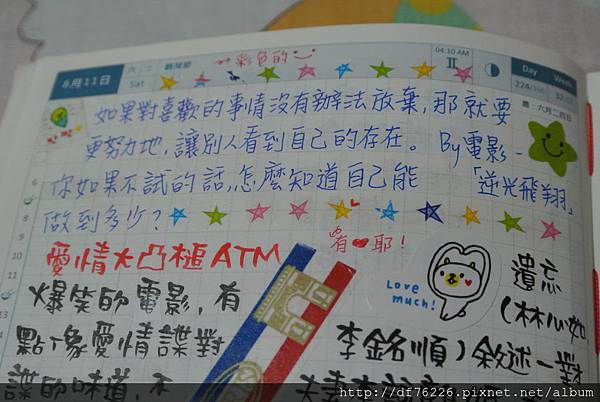 8月11日
Sat
彩色的
04:10 AM
II
Day
Week
224/366
32
農:六月二四日
如果對喜歡的事情沒有辦法放棄,那就要
更努力地,讓別人看到自己的存在。 By電影-
「逆光飛翔」
你如果不試的話,怎麼知道自己能
做到多少?
有 耶!
愛情大凸槌ATM
爆笑的電影,有
點像愛情諜對
諜的味道,不
Love
much!
遺忘
(林心如,
李銘順)敘述一對
6
8
9
10
11
13
http://df76226.pixnet.net/album